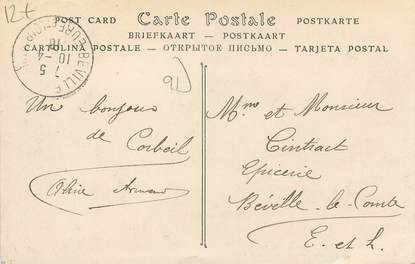 12+
POST CARD Carte Postale POSTKARTE
BRIEFKAART — POSTKAART
CARTOLINA POSTALE — ОТКРЫТОЕ ПИСЬМО — TARJETA POSTAL
BÉVILLE
7 5
10-4
91
Un bonjour
de Corbeil
Armand
Mme et Monsieur
Epicerie
Béville-le-Comte
E. et L.